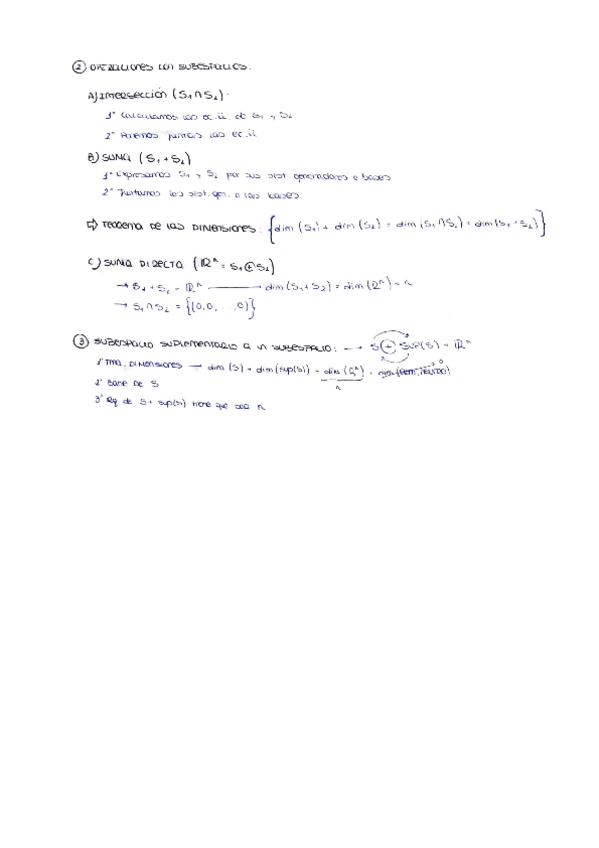 ② OPERACIONES CON SUBESPACIOS:
A) INTERSECCIÓN (S₁ ∩ S₂).
1º Calculamos las ec.ii. de S₁ y S₂
2º Ponemos juntas las ec.ii
B) SUMA (S₁ + S₂)
1º Expresamos S₁ y S₂ por sus sist. generadores o bases
2º Juntamos los sist. gen. o las bases.
TEOREMA DE LAS DIMENSIONES: {dim (S₁) + dim (S₂) = dim (S₁ ∩ S₂) + dim (S₁ + S₂)}
C) SUMA DIRECTA (ℝⁿ = S₁ ⊕ S₂)
→ S₁ + S₂ = ℝⁿ → dim (S₁ + S₂) = dim (ℝⁿ) = n
→ S₁ ∩ S₂ = {(0,0, ...,0)}
③ SUBESPACIO SUPLEMENTARIO A UN SUBESPACIO: → S ⊕ SUP(S) = ℝⁿ
1º TMA. DIMENSIONES → dim (S) + dim (sup(S)) = dim (ℝⁿ) + 0
n
2º Base de S
3º Rg de S + sup(S) tiene que ser n